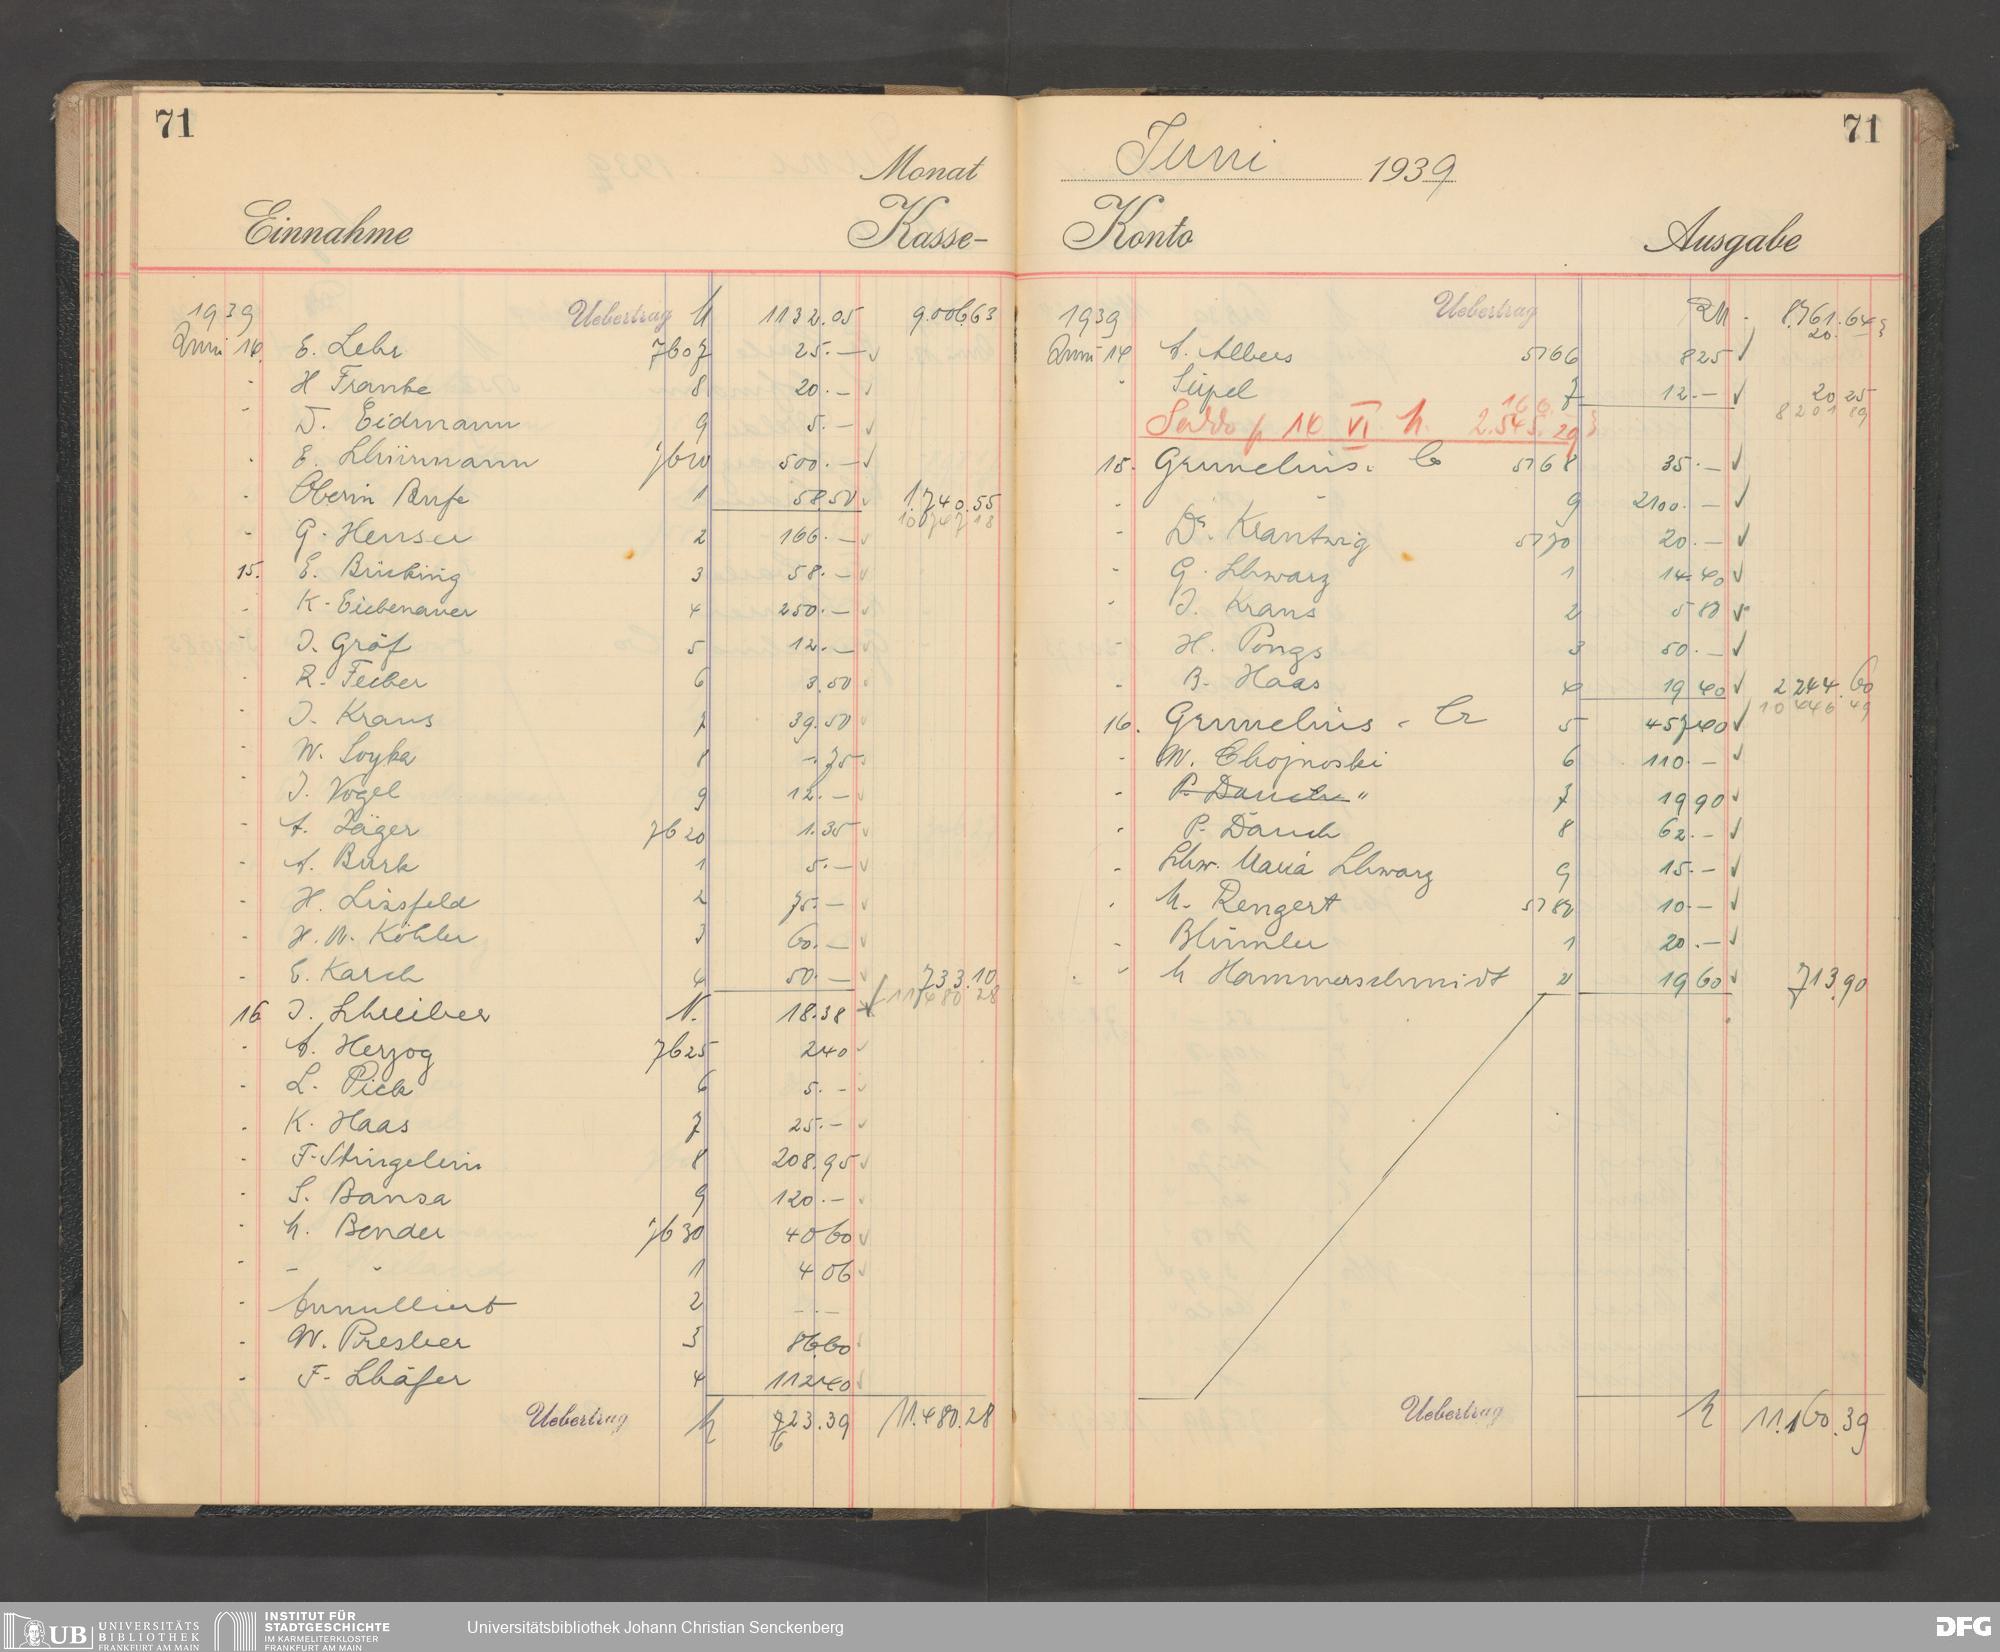 71
Monat
Einnahme Kasse-
1939 Uebertrag M 1132.05 9.006.63
Juni 14. E. Lehr 7607 25.—
- H Franke 8 20.—
- D. Eidmann 9 5.—
- E. Schürmann 7610 500.—
- Oberin Bufe 1 58.50 1.740.55
10 747 18
- G. Henser 2 166.—
15. E. Brücking 3 58.—
- K. Eichenauer 4 250.—
- J. Gräf 5 12.—
- R. Feiber 6 3.50
- J. Kraus 7 39.50
- W. Soyka 8 —.75
- J. Vogel 9 12.—
- A. Jäger 7620 1.35
- A. Burk 1 5.—
- H. Lissfeld 2 75.—
- H. W. Köhler 3 60.—
- E. Karch 4 50.— 733.10
11 480 28
16 J. Schreiber N. 18.38
- A. Herzog 7625 2 40
- L. Pick 6 5.—
- K. Haas 7 25.—
- F. Stringelein 8 208.95
- S. Bansa 9 120.—
- M. Bender 7630 40 60
- - - 1 4 06
- Annulliert 2 — . —
- W. Presber 3 86.60
- F. Schäfer 4 112 40
Uebertrag M 623.39 11.480.28
71
Juni 1939
Konto Ausgabe
1939 Uebertrag RM. 8.761.64
20.—
Juni 14 A. Albers 5766 8 25
- Seipel 7 12.— 20 25
8 201 89
Saldo p 14 VI M. 2.545.29
15. Grunelius & Co 5768 35.—
- " 9 2100.—
- Dr. Krantwig 5770 20.—
- G. Schwarz 1 14.40
- J. Kraus 2 5 80
- H. Pongs 3 50.—
- B. Haas 4 19 40 2 244.60
10 446 49
16. Grunelius & Co 5 457 40
- W. Chojnoski 6 110.—
- P. Dauch " 7 19 90
- P. Dauch 8 62.—
- Schw. Maria Schwarz 9 15.—
- M. Rengert 5780 10.—
- Blümler 1 20.—
- M Hammerschmidt 2 19 60 713.90
Uebertrag M 11.160.39
UB UNIVERSITÄTS
BIBLIOTHEK
FRANKFURT AM MAIN
INSTITUT FÜR
STADTGESCHICHTE
IM KARMELITERKLOSTER
FRANKFURT AM MAIN
Universitätsbibliothek Johann Christian Senckenberg
DFG